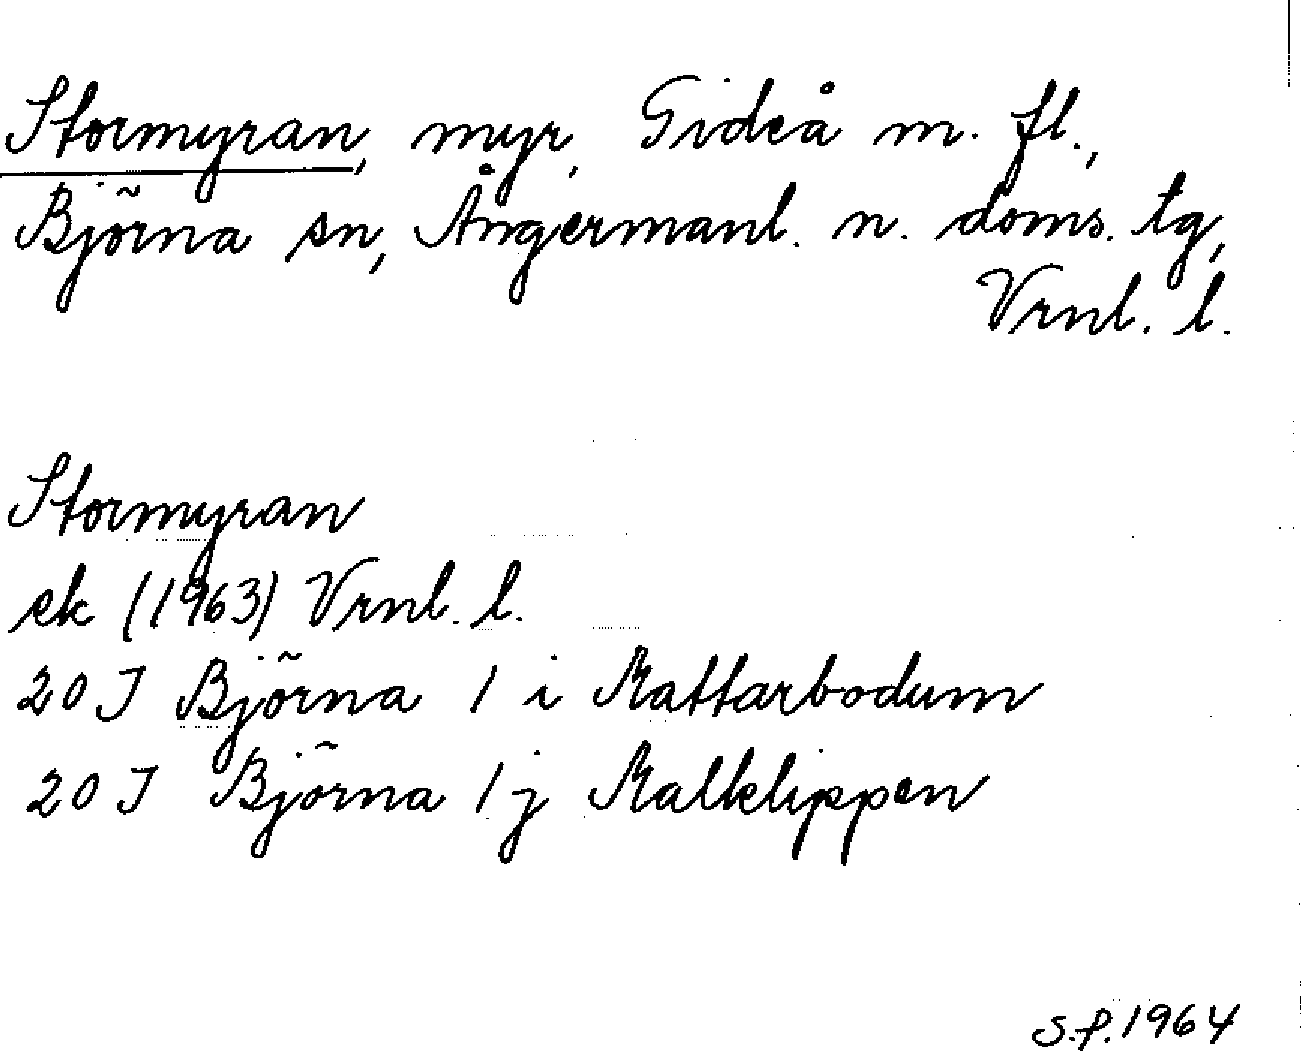 Stormyran, myr, Gideå m. fl.,
Björna sn, Ångermanl. n. doms. tg,
Vrnl. l.
Stormyran
ek (1963) Vrnl. l.
20 J Björna 1 i Mattarbodum
20 J Björna 1 j Malklippen
S.P. 1964